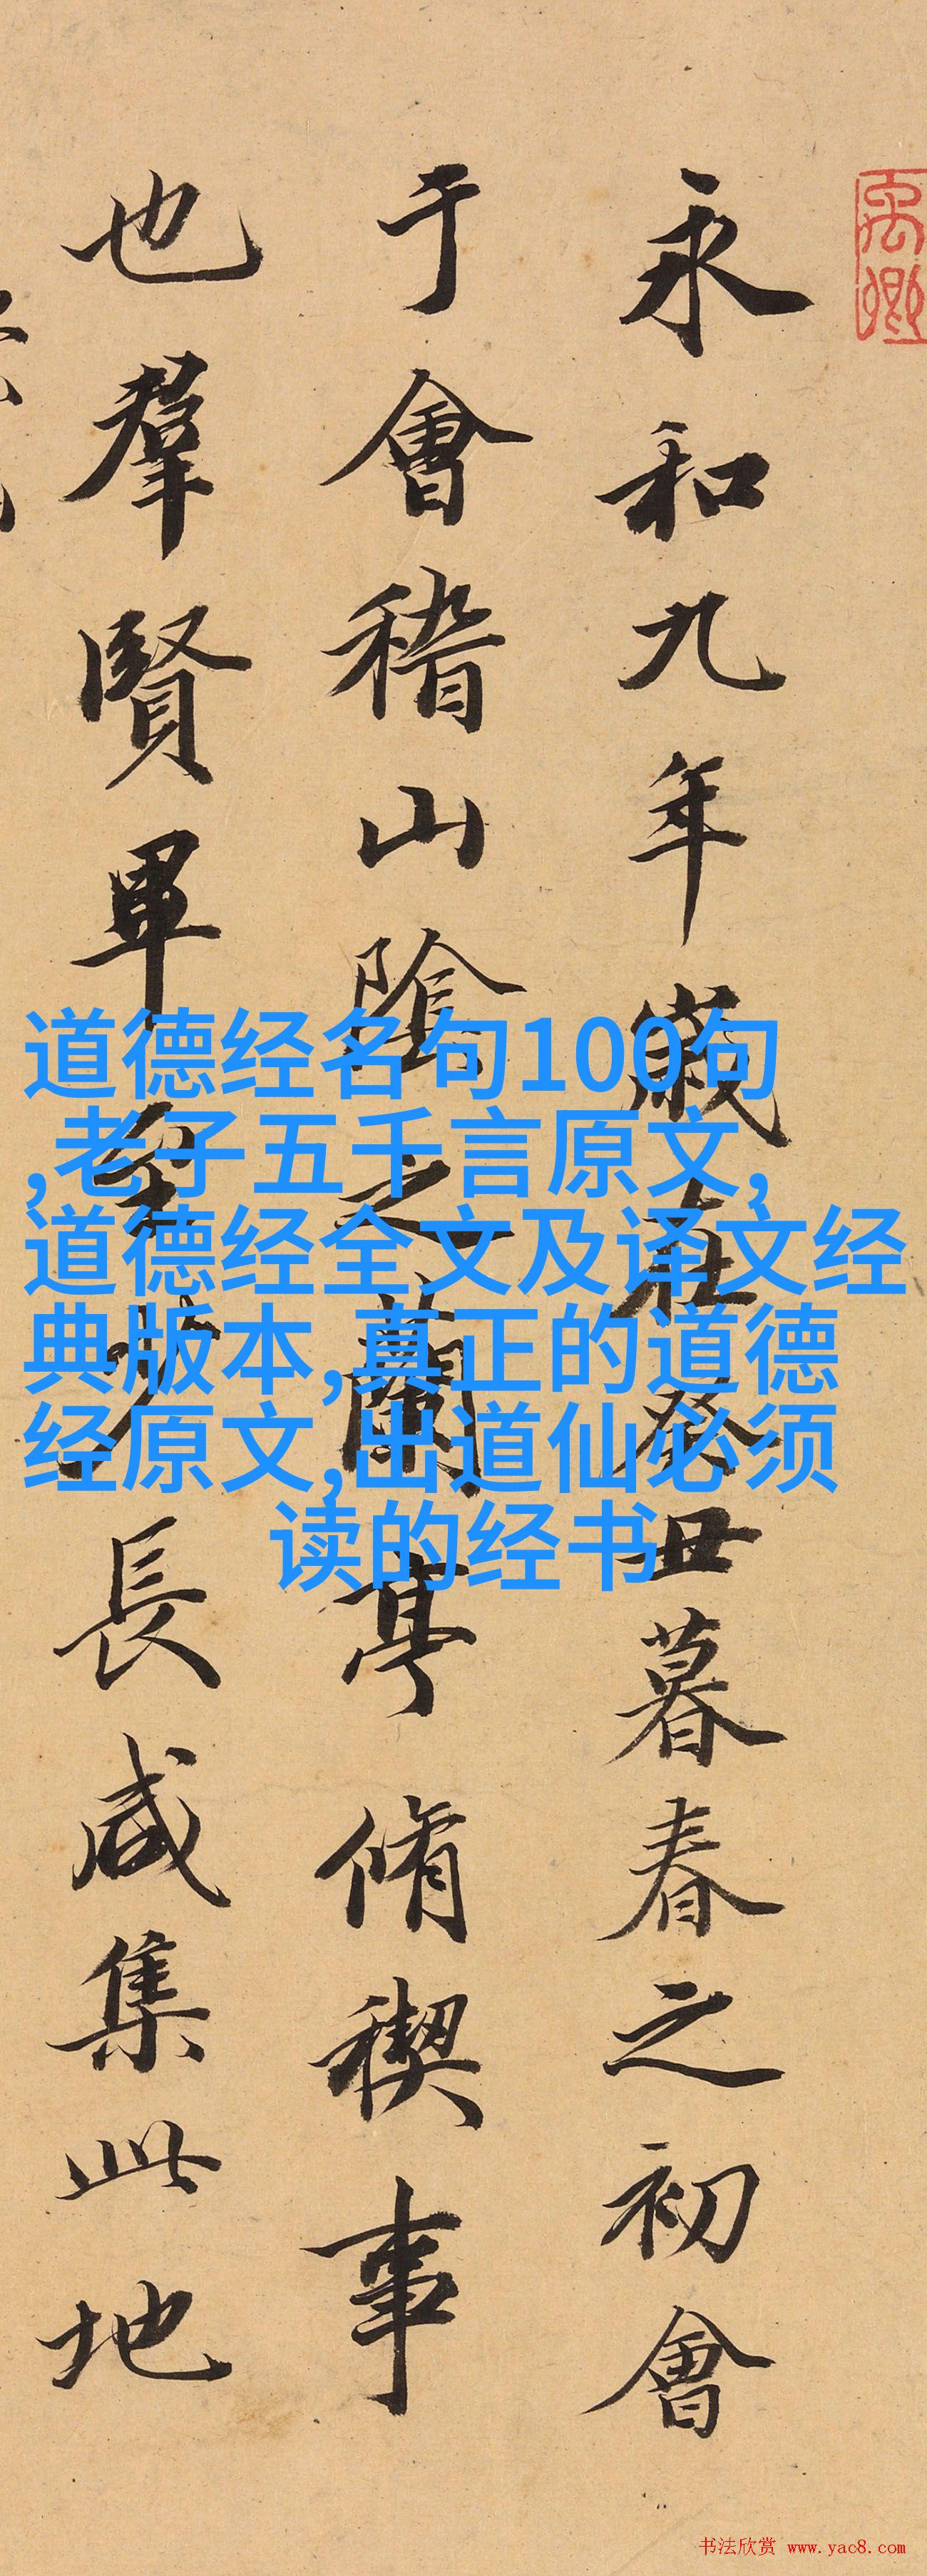 禹卿
永和九年歲在癸丑暮春之初會
于會稽山隂之蘭亭脩稧事
也羣賢畢至少長咸集此地
道德经名句100句
,老子五千言原文,
道德经全文及译文经
典版本,真正的道德
经原文,出道仙必须
读的经书
书法欣赏 www.yac8.com